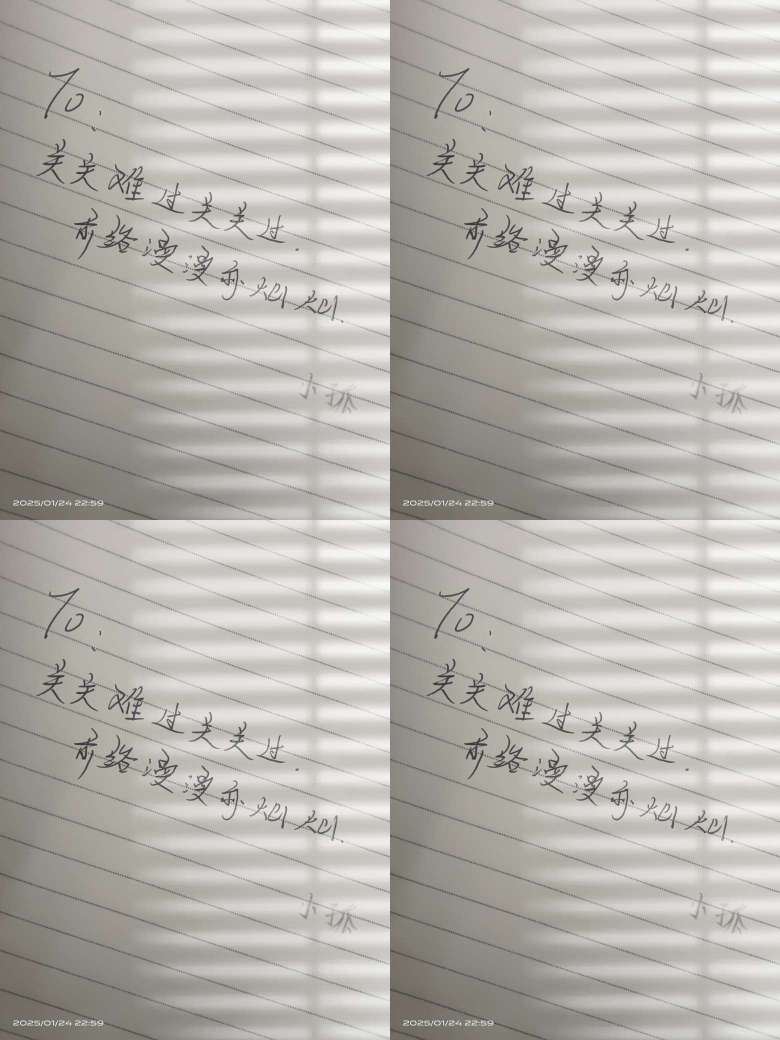 To、
关关难过关关过.
前路漫漫亦灿灿.
2025/01/24 22:59
To、
关关难过关关过.
前路漫漫亦灿灿.
2025/01/24 22:59
To、
关关难过关关过.
前路漫漫亦灿灿.
2025/01/24 22:59
To、
关关难过关关过.
前路漫漫亦灿灿.
2025/01/24 22:59